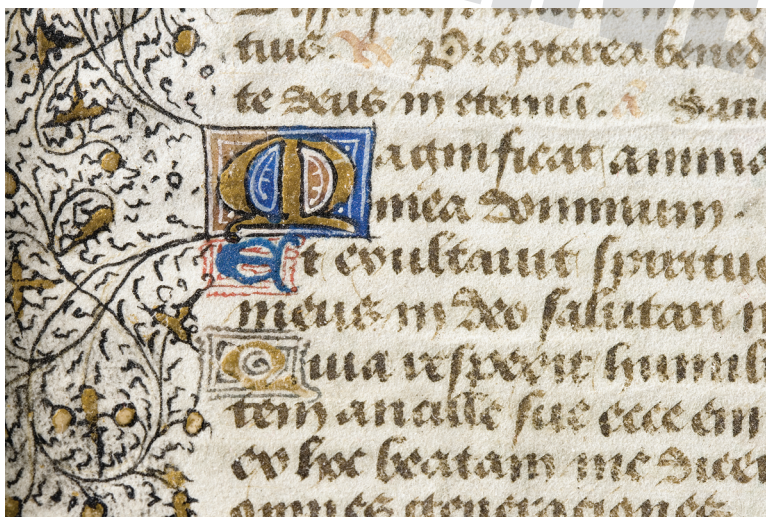 tuis. Propterea bened
te deus in eternū. a Sanc
Magnificat anima
mea dominum.
Et exultauit spiritus
meus in deo salutari m
Quia respexit humili
tem ancille sue ecce enī
ex hoc beatam me dicen
omnes generationes